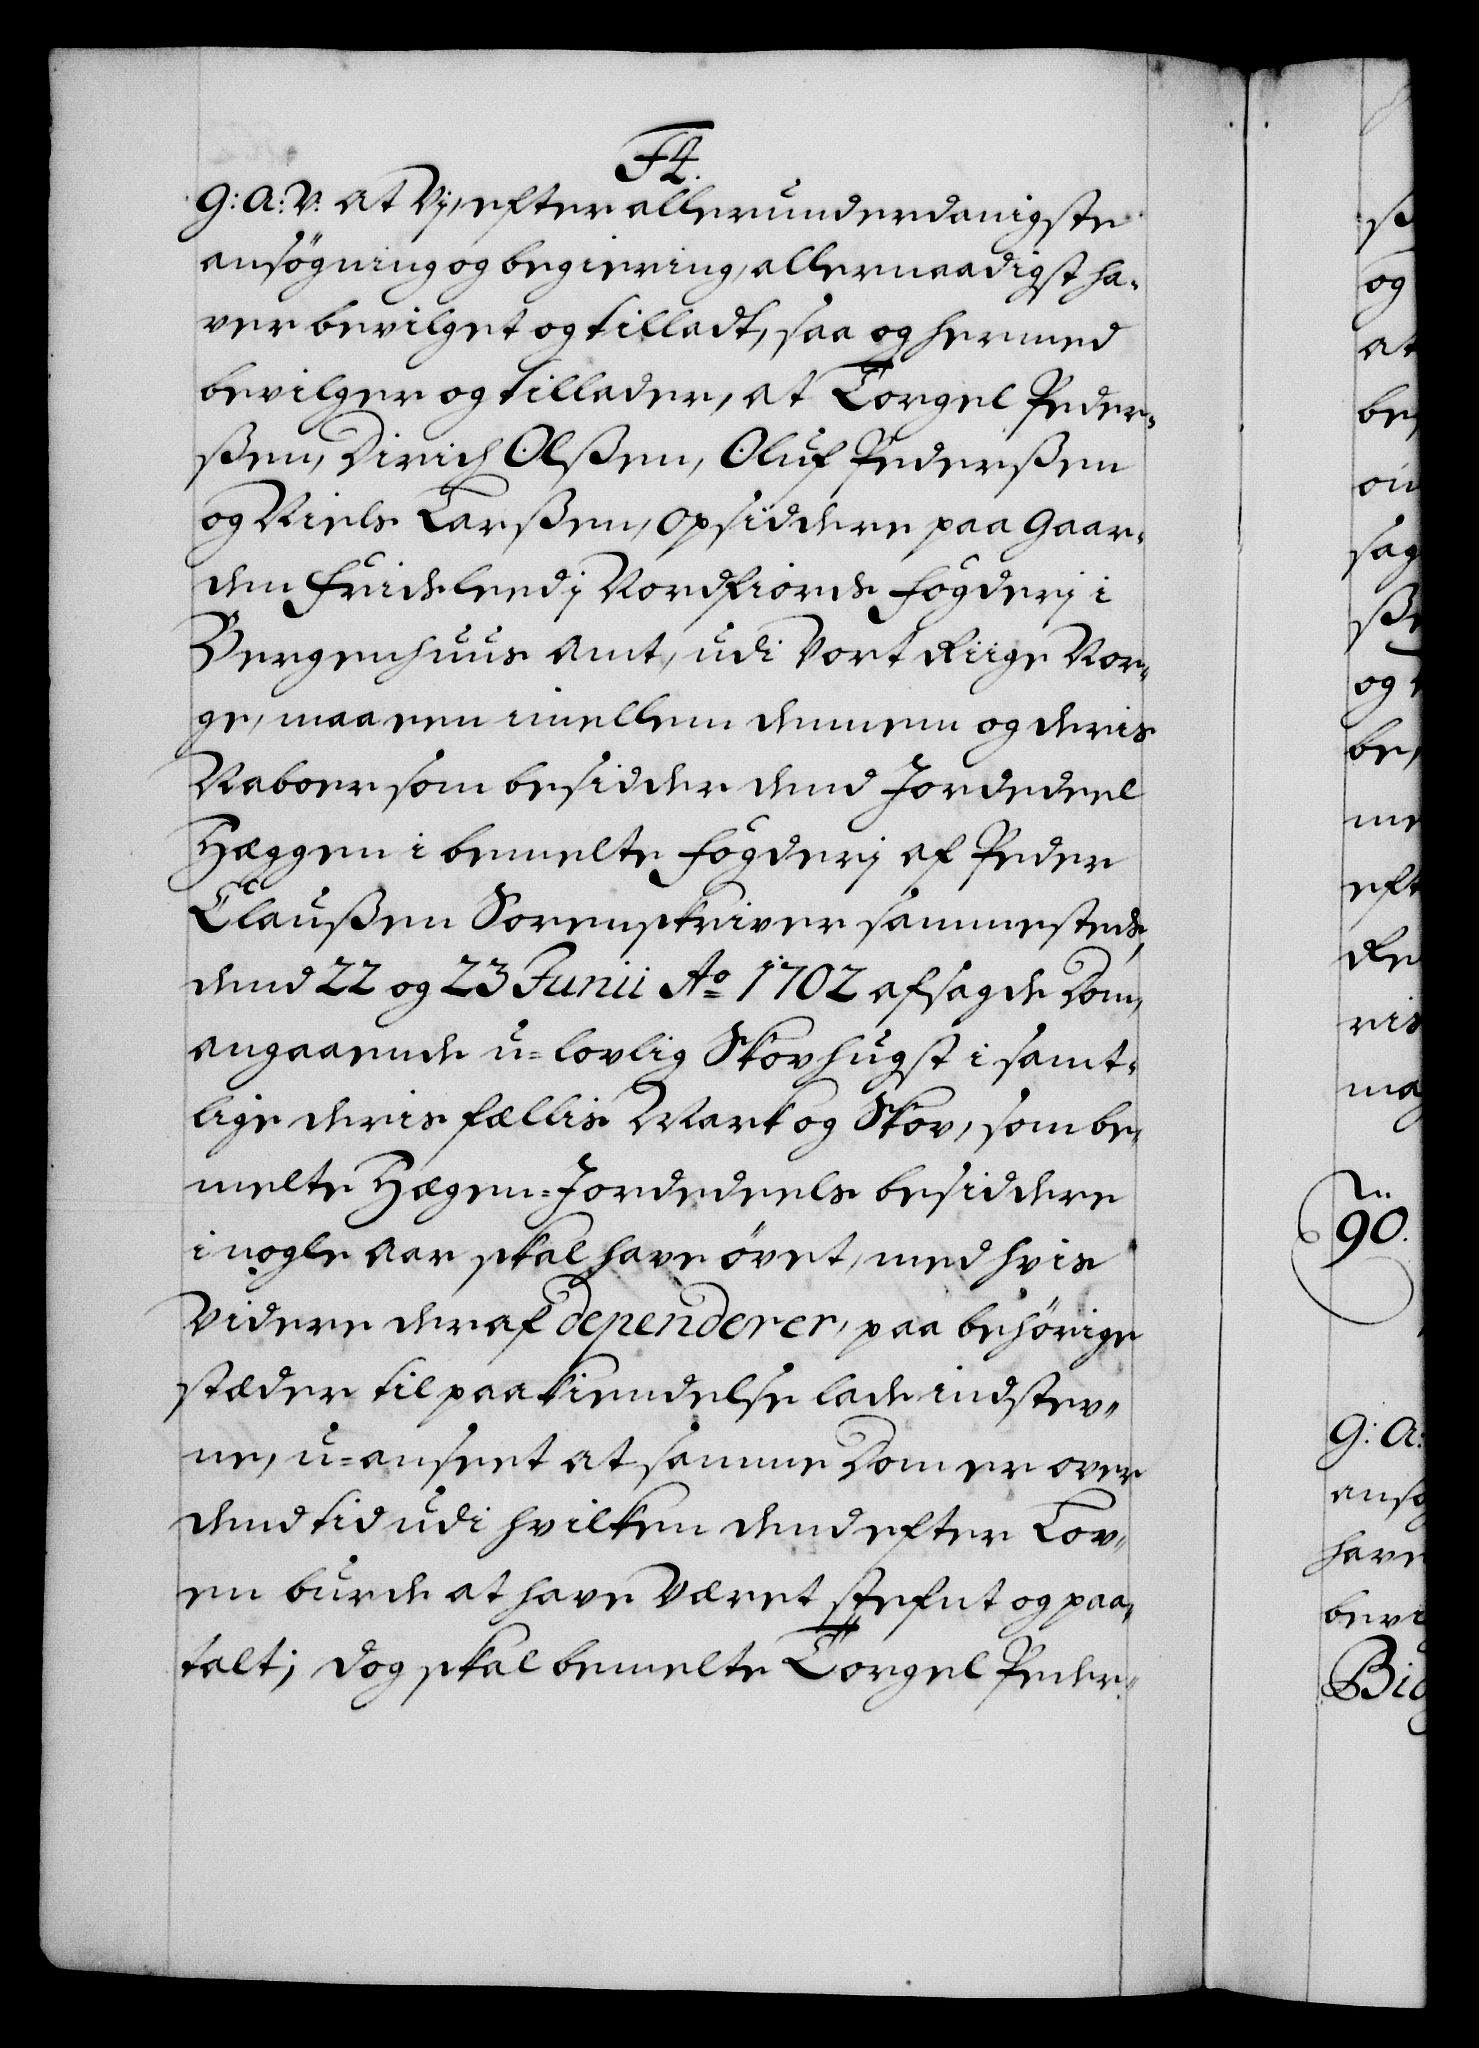 F4.
G: A: V. at Vj, efter allerunderdanigste
ansögning og begiering, allernaadigst ha-
ver bevilget og tilladt, saa og hermed
bevilger og tillader, at Torgel Peder-
ßen, Dirich Olßen, Oluf Pederßen
og Niels Larßen, Opsiddere paa Gaar-
den Frideleed j Nordfiords Fogderj i
Bergenhuus Amt, udi Vort Riige Nor-
ge, maa een imellem dennem og deris
Naboer som besidder dend Jordedeel
Hæggen i bemelte Fogderj af Peder
Claußen Sorenskriver sammesteds,
dend 22 og 23 Junii Ao 1702 afsagde Dom,
angaaende u-lovlig Skovhugst i samt-
lige deris fællis Mark og Skov, som be-
melte Hægen-Jordedeels besiddere
i nogle Aar skal have övet, med hvis
Videre deraf dependerer, paa behörige
stæder til paakiendelse lade indstev-
ne, u-anseet at samme Dom er over
dend tid udi hvilken dend efter Lov-
en burde at have Været stefnt og paa-
talt; Dog skal bemelte Torgel Peder-
og
at
90.
G: A:
have